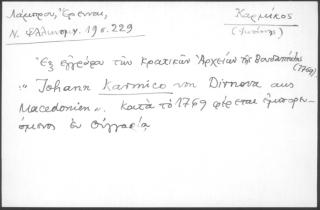 Λάμπρου, Ἔρευναι,
Ν. Ἑλληνομν. 19 σ. 229
Καρμίκος
(Ἰωάννης)
Ἐξ ἐγγράφου τῶν Κρατικῶν Ἀρχείων τῆς Βουδαπέστης
(1769)
"Johann Karmico von Dirnova aus
Macedonien". Κατὰ τὸ 1769 φέρεται ἐμπορευ-
όμενος ἐν Οὑγγαρίᾳ